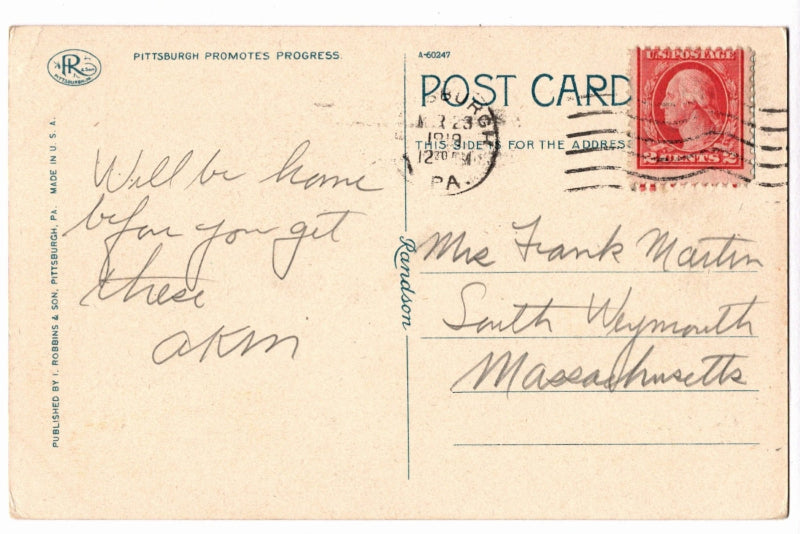 PR
& Son
PITTSBURGH, PA.
PITTSBURGH PROMOTES PROGRESS.
PUBLISHED BY I. ROBBINS & SON, PITTSBURGH, PA. MADE IN U.S.A.
Will be home
before you get
these
AKM
A-60247
POST CARD
THIS SIDE IS FOR THE ADDRESS
Randson
BURGH
23
1919
12 30 PM
PA.
U.S. POSTAGE
2 CENTS 2
Mrs Frank Martin
South Weymouth
Massachusetts